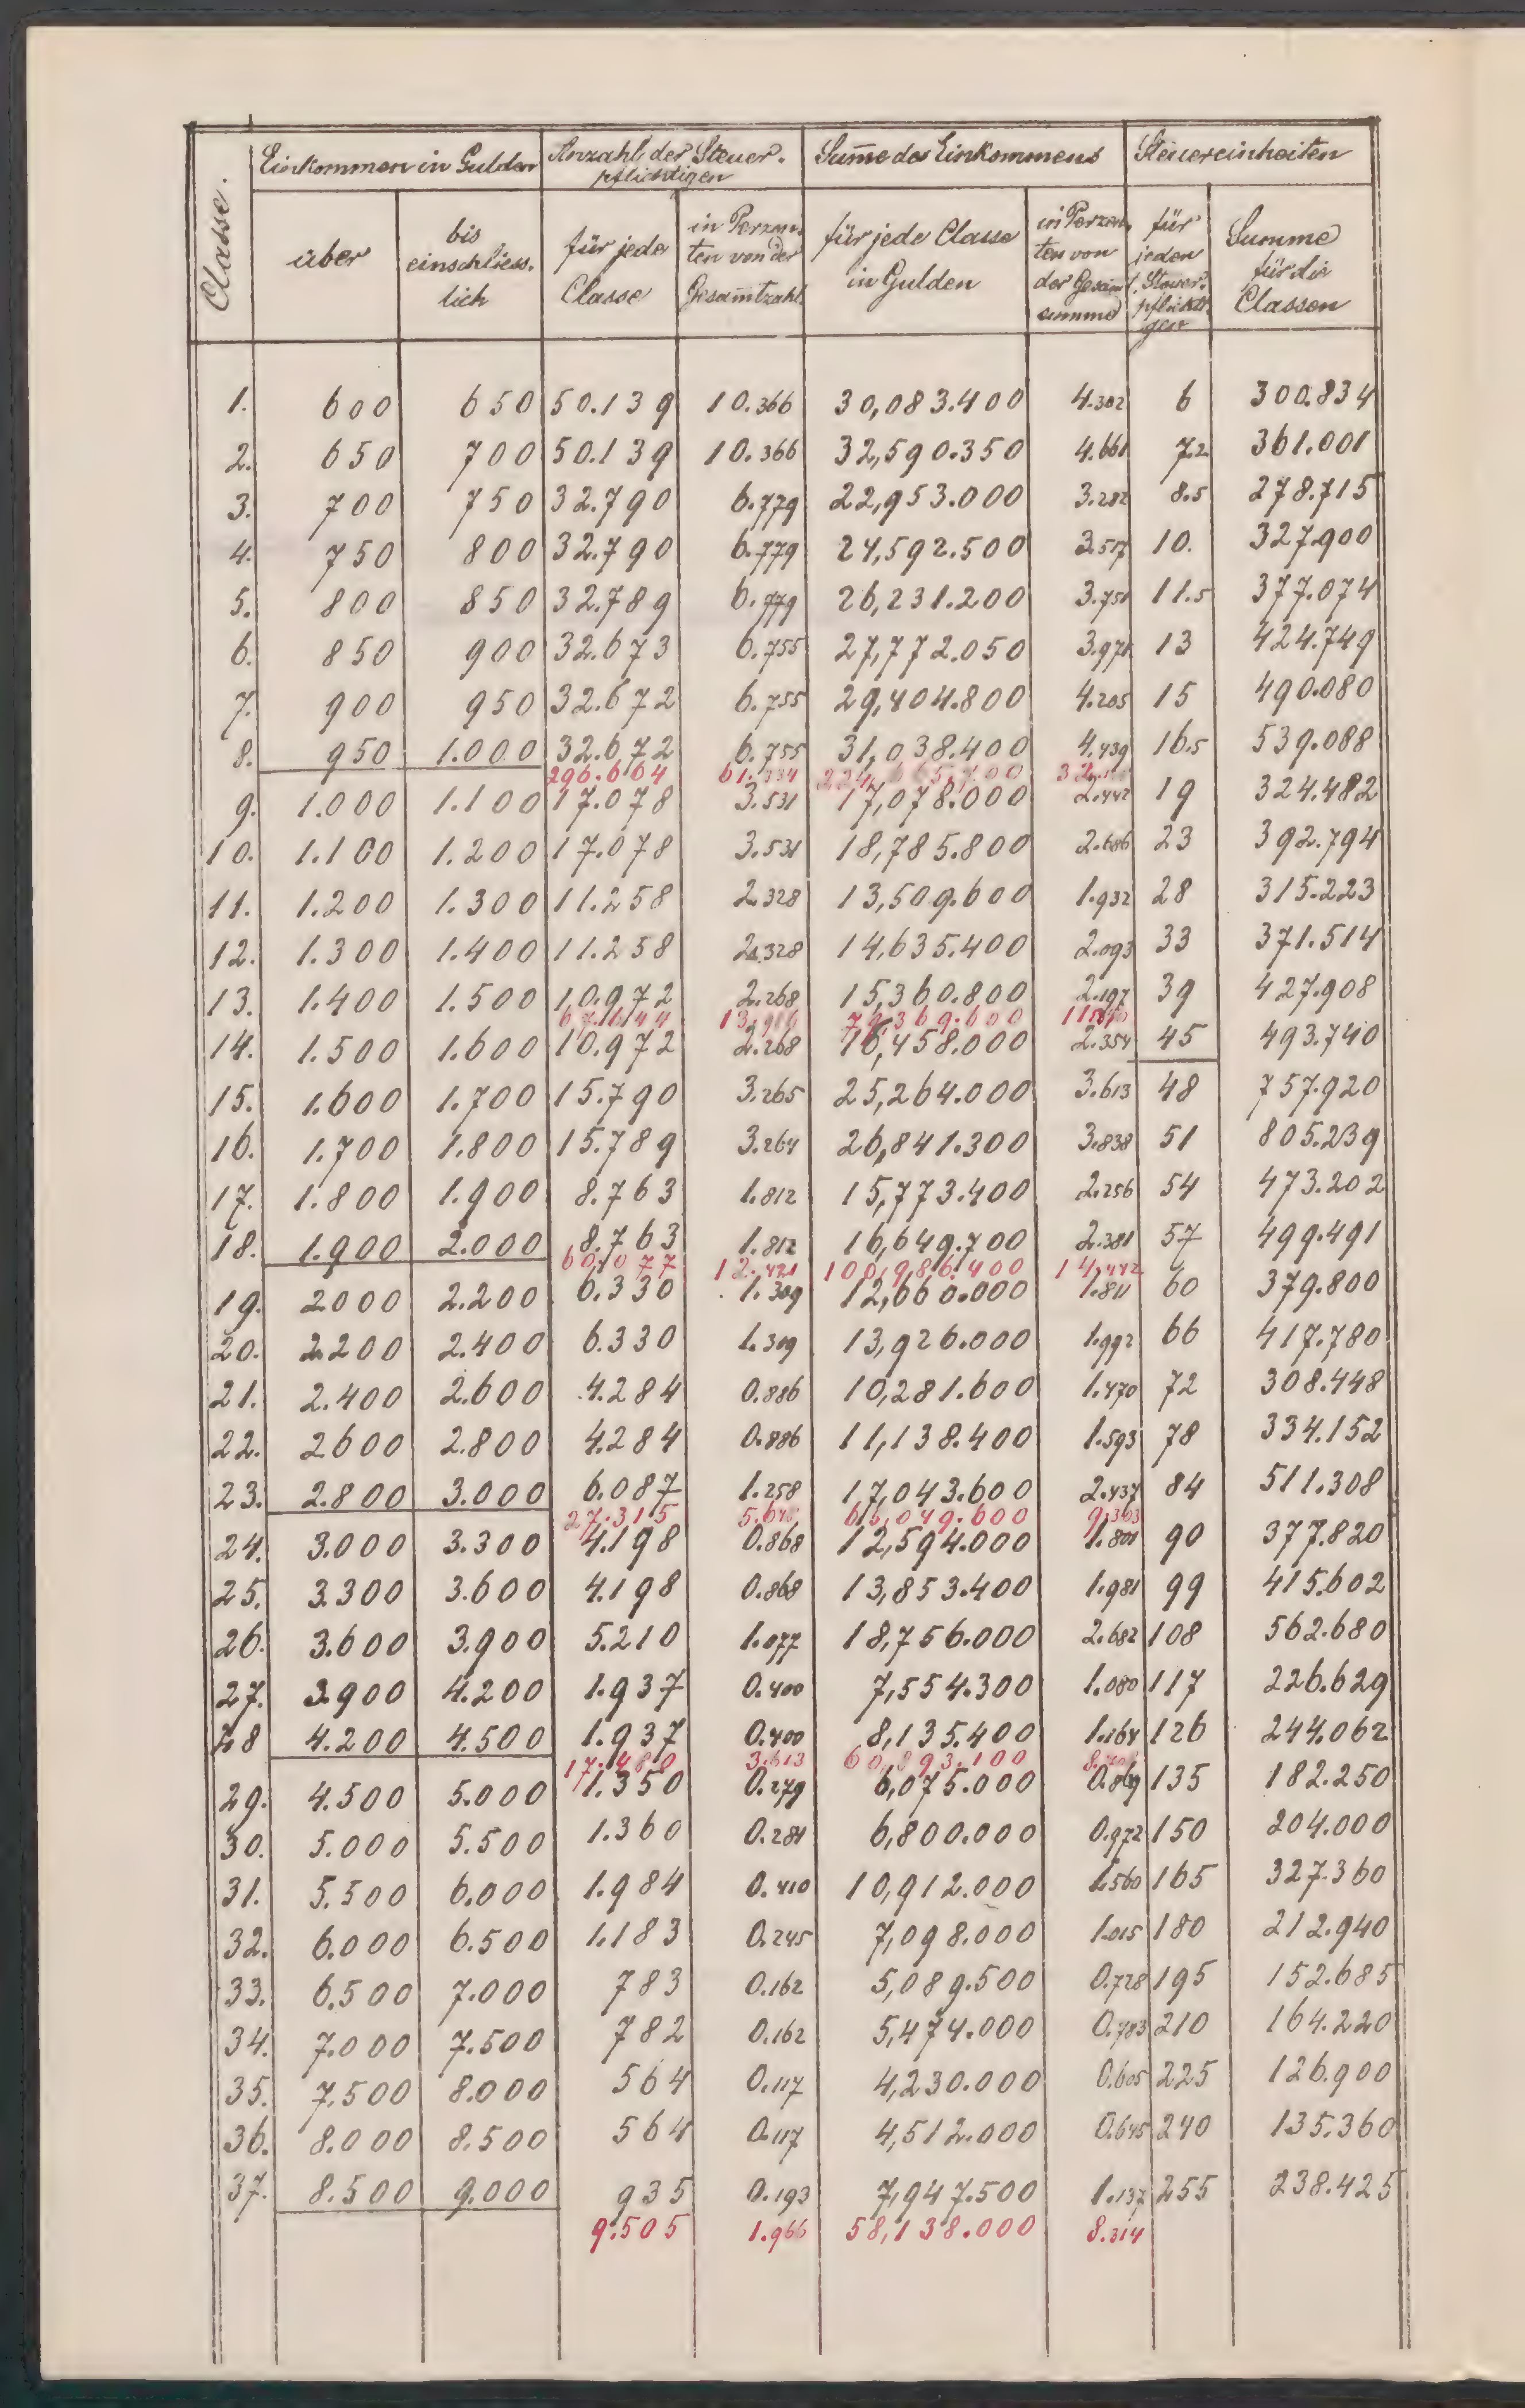 Classe.
Einkommen in Gulden
Anzahl der Steuer-
pflichtigen
Summe des Einkommens
Steuereinheiten
über
bis
einschliess-
lich
für jede
Classe
in Perzen-
ten von der
Gesammtzahl
für jede Classe
in Gulden
in Perzen-
ten von
der Gesammt
summe
für
jeden
Steuer-
pflichti-
gen
Summe
für die
Classen
1. 600 650 50.139 10.366 30,083.400 4.302 6 300.834
2. 650 700 50.139 10.366 32,590.350 4.661 7.2 361.001
3. 700 750 32.790 6.779 22,953.000 3.282 8.5 278.715
4. 750 800 32.790 6.779 24,592.500 3.517 10. 327.900
5. 800 850 32.789 6.779 26,231.200 3.751 11.5 377.074
6. 850 900 32.673 6.755 27,772.050 3.971 13 424.749
7. 900 950 32.672 6.755 29,404.800 4.205 15 490.080
8. 950 1.000 32.672 6.755 31,038.400 4.439 16.5 539.088
296.664 61.334 224,665.700
9. 1.000 1.100 17.078 3.531 17,078.000 2.442 19 324.482
10. 1.100 1.200 17.078 3.531 18,785.800 2.686 23 392.794
11. 1.200 1.300 11.258 2.328 13,509.600 1.932 28 315.223
12. 1.300 1.400 11.258 2.328 14,635.400 2.093 33 371.514
13. 1.400 1.500 10.972 2.268 15,360.800 2.197 39 427.908
67.644 79,369.600
14. 1.500 1.600 10.972 2.268 16,458.000 2.354 45 493.740
15. 1.600 1.700 15.790 3.265 25,264.000 3.613 48 757.920
16. 1.700 1.800 15.789 3.264 26,841.300 3.838 51 805.239
17. 1.800 1.900 8.763 1.812 15,773.400 2.256 54 473.202
18. 1.900 2.000 8.763 1.812 16,649.700 2.381 57 499.491
60.077 12.421 100,986.400 14.442
19. 2.000 2.200 6.330 1.309 12,660.000 1.811 60 379.800
20. 2.200 2.400 6.330 1.309 13,926.000 1.992 66 417.780
21. 2.400 2.600 4.284 0.886 10,281.600 1.470 72 308.448
22. 2600 2.800 4.284 0.886 11,138.400 1.593 78 334.152
23. 2.800 3.000 6.087 1.258 17,043.600 2.437 84 511.308
27.315 5.648 65,049.600 9.303
24. 3.000 3.300 4.198 0.868 12,594.000 1.801 90 377.820
25. 3.300 3.600 4.198 0.868 13,853.400 1.981 99 415.602
26. 3.600 3.900 5.210 1.077 18,756.000 2.682 108 562.680
27. 3.900 4.200 1.937 0.400 7,554.300 1.080 117 226.629
28 4.200 4.500 1.937 0.400 8,135.400 1.164 126 244.062
17.480 3.613 60,893.100
29. 4.500 5.000 1.350 0.279 6,075.000 0.869 135 182.250
30. 5.000 5.500 1.360 0.281 6,800.000 0.972 150 204.000
31. 5.500 6.000 1.984 0.410 10,912.000 1.560 165 327.360
32. 6.000 6.500 1.183 0.245 7,098.000 1.015 180 212.940
33. 6.500 7.000 783 0.162 5,089.500 0.728 195 152.685
34. 7.000 7.500 782 0.162 5,474.000 0.783 210 164.220
35. 7.500 8.000 564 0.117 4,230.000 0.605 225 126.900
36. 8.000 8.500 564 0.117 4,512.000 0.645 240 135.360
37. 8.500 9.000 935 0.193 7,947.500 1.137 255 238.425
9.505 1.966 58,138.000 8.314